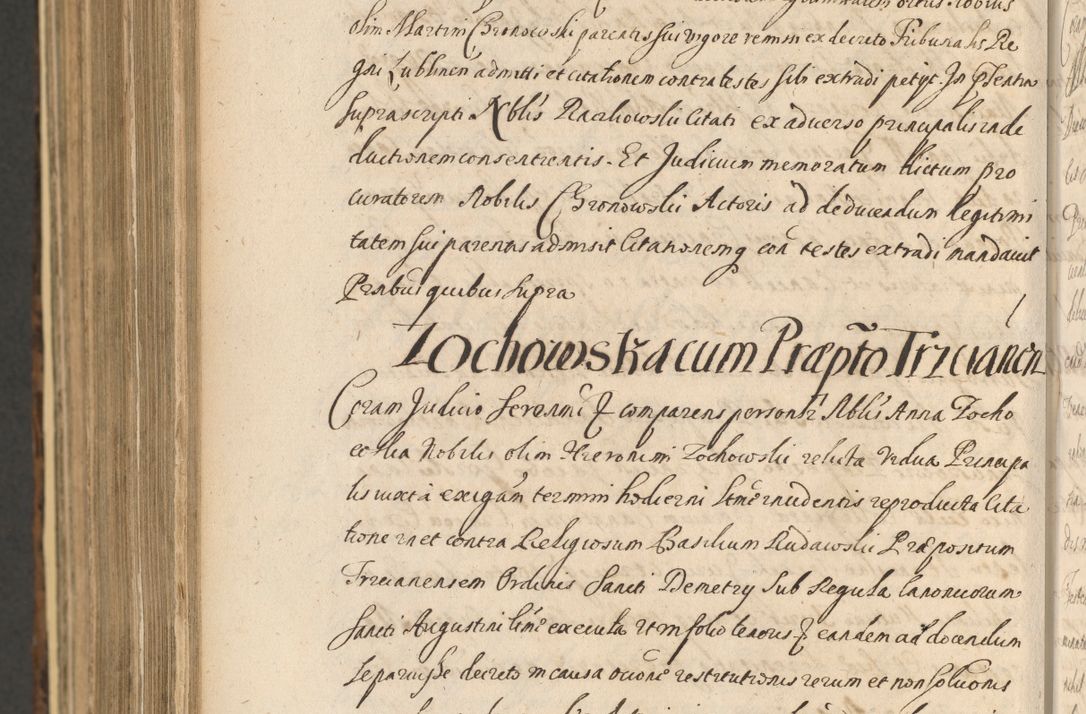 olim Martini Chronowski parentis sui vigore remiss ex decreto Tribunalis Re
gni Lublinen admitti et citationem contra testes sibi extradi petyt. In pñtentia
suprascripti Nblis Raczkowski Citati ex adverso principalis in de
ductionem consentientis. Et Judicium memoratum dictum pro
curatorem Nobilis Chronowski Actoris ad deducendum legitimi
tatem sui parentis admisit Citationemq con testes extradi mandavit
Pñtibus quibus supra
Zochowska cum Præpto Trzcianen
Coram Judicio comparens personlr Nblis Anna Zocho
wska Nobilis olim Hieronimi Zochowski relicta Vidua Principa
lis iuxta exigām termini hodierni incidentis reproducta Cita
tione in et contra Religiosum Basilium Rudawski Præpositum
Trzcianensem Ordinis Sancti Demetry Sub Regula Canonicorum
Sancti Augustini eandem ad docendum
se paruisse decreto in causa restitutionis rerum et non